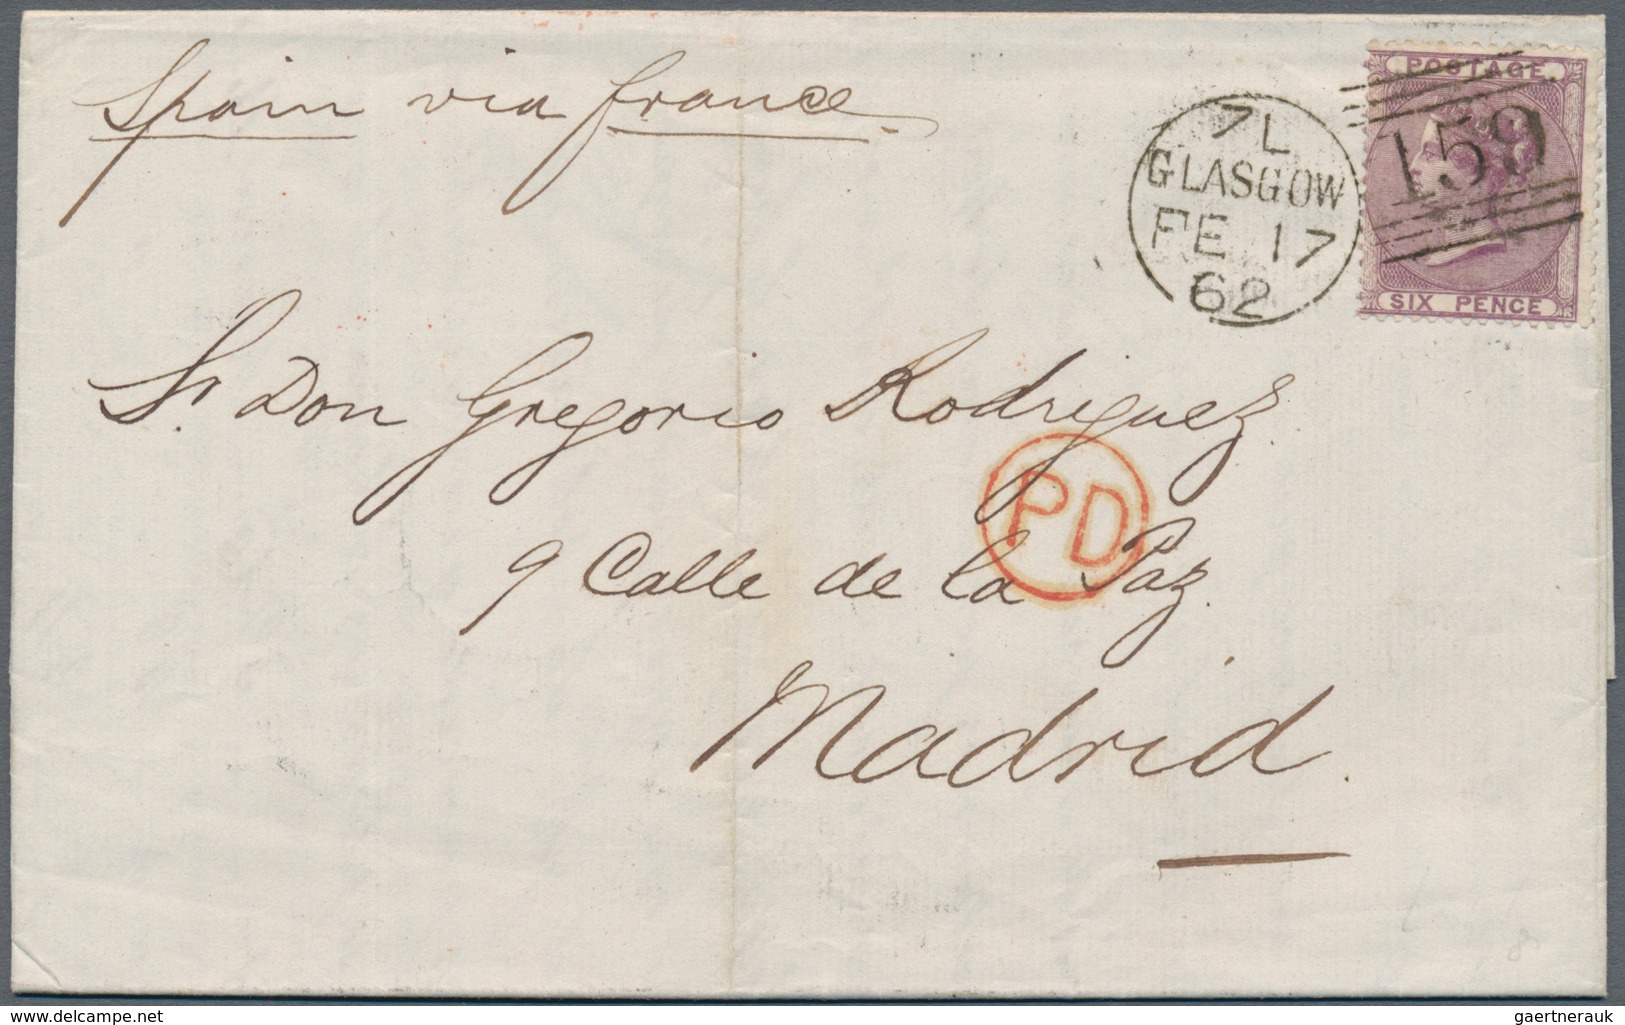 Spain via France.
7L
GLASGOW
FE 17
62
POSTAGE
159
SIX PENCE
Sr. Don Gregorio Rodriguez
PD
9 Calle de la Paz.
Madrid.
www.delcampe.net
gaertnerauk